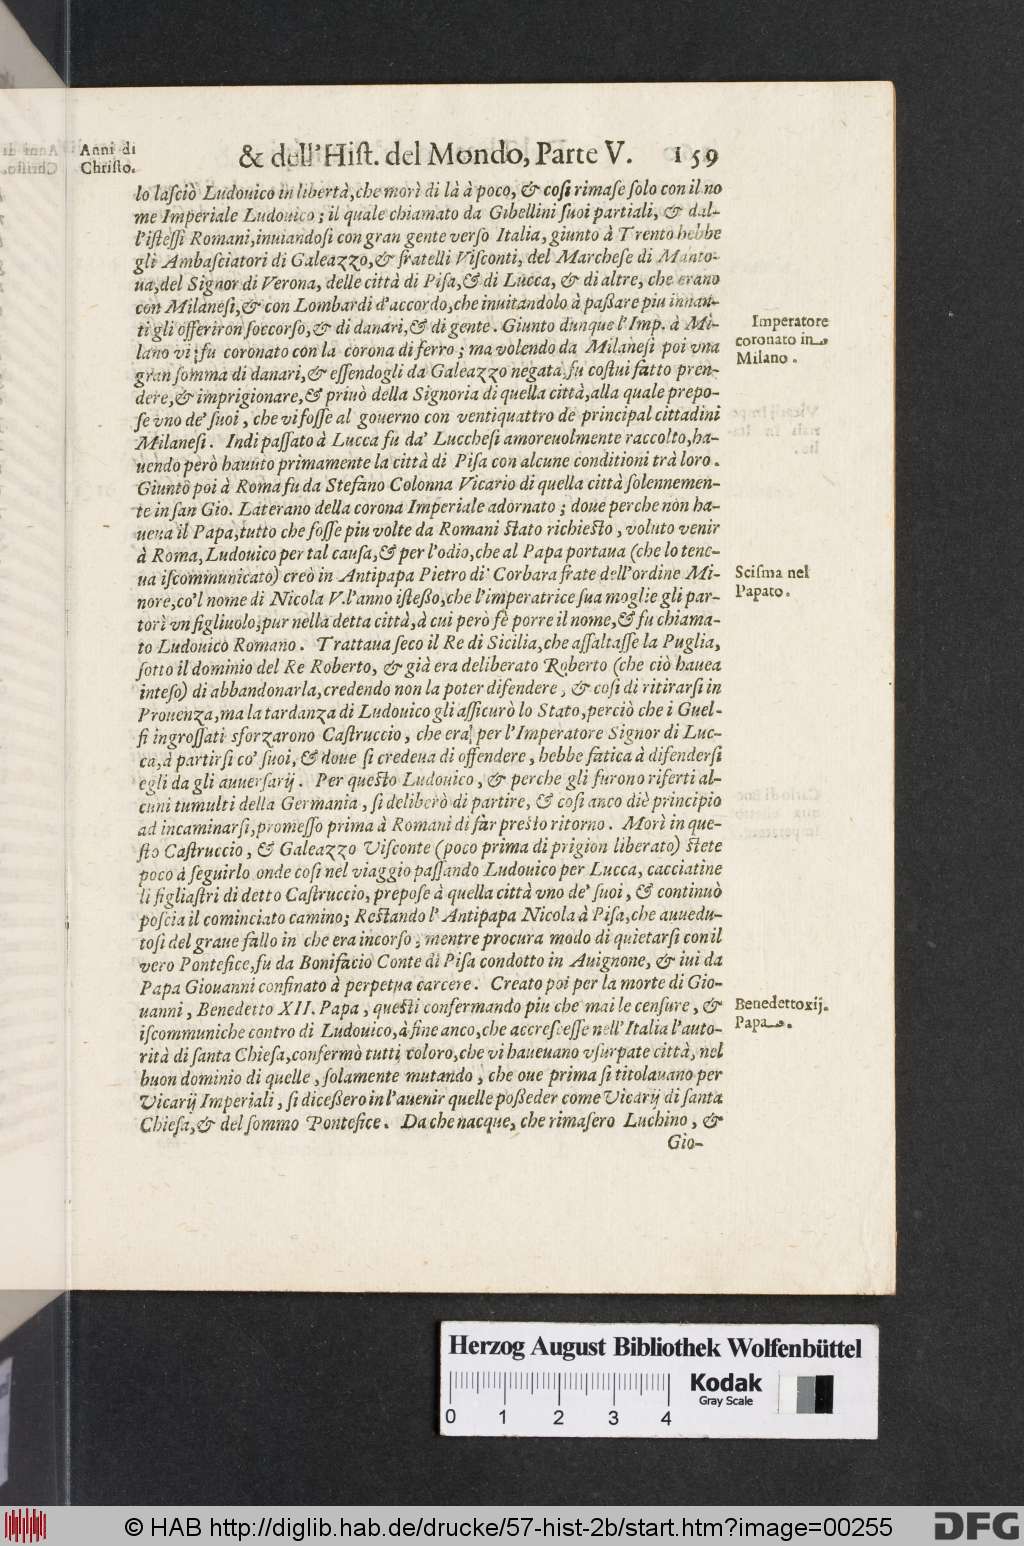 Anni di
Christo.
& dell'Hist. del Mondo, Parte V. 159
lo lasciò Ludouico in libertà, che morì di là à poco, & cosi rimase solo con il no
me Imperiale Ludouico; il quale chiamato da Gibellini suoi partiali, & dal-
l'istessi Romani, inuiandosi con gran gente verso Italia, giunto à Trento hebbe
gli Ambasciatori di Galeazzo, & fratelli Visconti, del Marchese di Manto-
ua, del Signor di Verona, delle città di Pisa, & di Lucca, & di altre, che erano
con Milanesi, & con Lombardi d'accordo, che inuitandolo à passare piu innan-
ti gli offeriron soccorso, & di danari, & di gente. Giunto dunque l'Imp. à Mi-
lano vi fu coronato con la corona di ferro; ma volendo da Milanesi poi vna
gran somma di danari, & essendogli da Galeazzo negata, fu costui fatto pren-
dere, & imprigionare, & priuò della Signoria di quella città, alla quale prepo-
se vno de' suoi, che vi fosse al gouerno con ventiquattro de principal cittadini
Milanesi. Indi passato à Lucca fu da' Lucchesi amoreuolmente raccolto, ha-
uendo però hauuto primamente la città di Pisa con alcune conditioni trà loro.
Giunto poi à Roma fu da Stefano Colonna Vicario di quella città solennemen-
te in san Gio. Laterano della corona Imperiale adornato; doue perche non ha-
ueua il Papa, tutto che fosse piu volte da Romani stato richiesto, voluto venir
à Roma, Ludouico per tal causa, & per l'odio, che al Papa portaua (che lo tene-
ua iscommunicato) creò in Antipapa Pietro di Corbara frate dell'ordine Mi-
nore, co'l nome di Nicola V. l'anno istesso, che l'imperatrice sua moglie gli par-
torì vn figliuolo, pur nella detta città, à cui però fè porre il nome, & fu chiama-
to Ludouico Romano. Trattaua seco il Re di Sicilia, che assaltasse la Puglia,
sotto il dominio del Re Roberto, & già era deliberato Roberto (che ciò hauea
inteso) di abbandonarla, credendo non la poter difendere, & cosi di ritirarsi in
Prouenza, ma la tardanza di Ludouico gli assicurò lo Stato, perciò che i Guel-
fi ingrossati sforzarono Castruccio, che era per l'Imperatore Signor di Luc-
ca, à partirsi co' suoi, & doue si credeua di offendere, hebbe fatica à difendersi
egli da gli auuersarij. Per questo Ludouico, & perche gli furono riferti al-
cuni tumulti della Germania, si deliberò di partire, & cosi anco diè principio
ad incaminarsi, promesso prima à Romani di far presto ritorno. Morì in que-
sto Castruccio, & Galeazzo Visconte (poco prima di prigion liberato) stete
poco à seguirlo onde cosi nel viaggio passando Ludouico per Lucca, cacciatine
li figliastri di detto Castruccio, prepose à quella città vno de' suoi, & continuò
poscia il cominciato camino; Restando l'Antipapa Nicola à Pisa, che auuedu-
tosi del graue fallo in che era incorso, mentre procura modo di quietarsi con il
vero Pontefice, fu da Bonifacio Conte di Pisa condotto in Auignone, & iui da
Papa Giouanni confinato à perpetua carcere. Creato poi per la morte di Gio-
uanni, Benedetto XII. Papa, questi confermando piu che mai le censure, &
iscommuniche contro di Ludouico, à fine anco, che accrescesse nell'Italia l'auto-
rità di santa Chiesa, confermò tutti coloro, che vi haueuano vsurpate città, nel
buon dominio di quelle, solamente mutando, che oue prima si titolauano per
Vicarij Imperiali, si dicessero in l'auenir quelle posseder come Vicarij di santa
Chiesa, & del sommo Pontefice. Da che nacque, che rimasero Luchino, &
Gio-
Imperatore
coronato in
Milano.
Scisma nel
Papato.
Benedetto xij.
Papa.
Herzog August Bibliothek Wolfenbüttel
0 1 2 3 4
Kodak
Gray Scale
© HAB http://diglib.hab.de/drucke/57-hist-2b/start.htm?image=00255
DFG